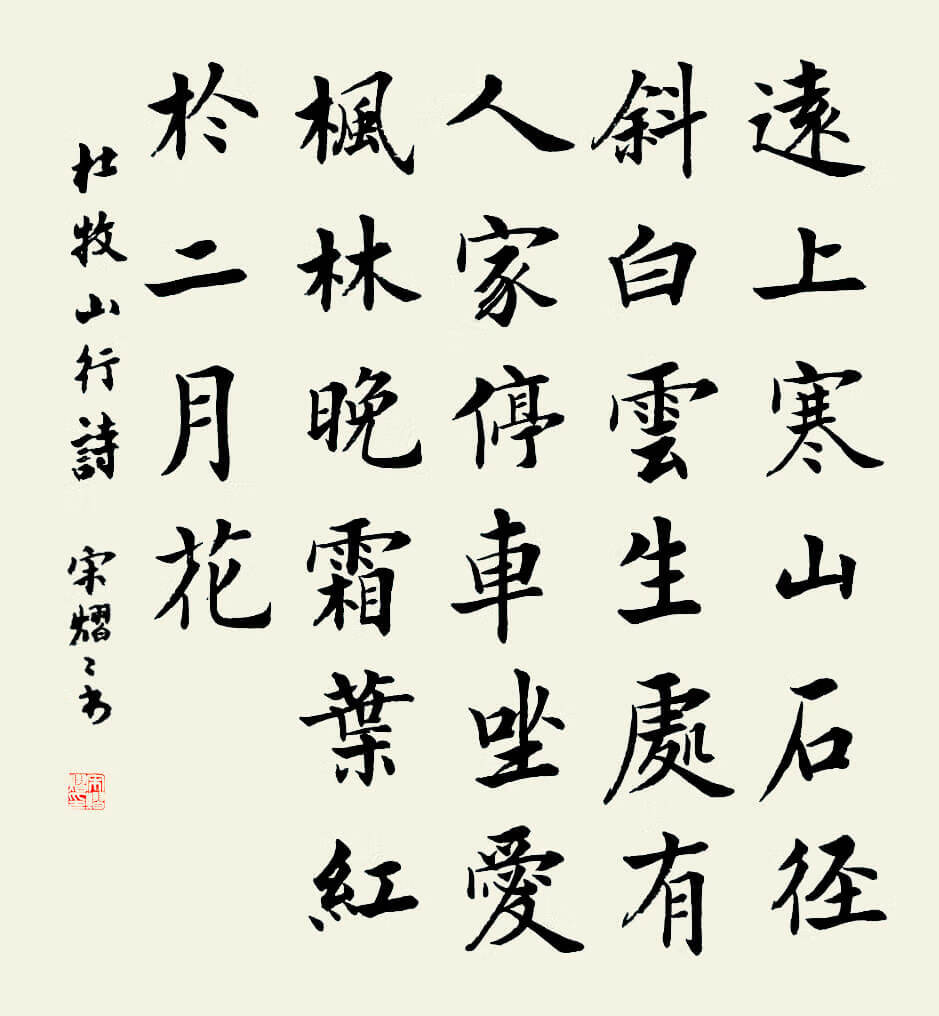 遠上寒山石径
斜白雲生處有
人家停車唑愛
楓林晚霜葉紅
於二月花
杜牧山行詩 宋熠〻书